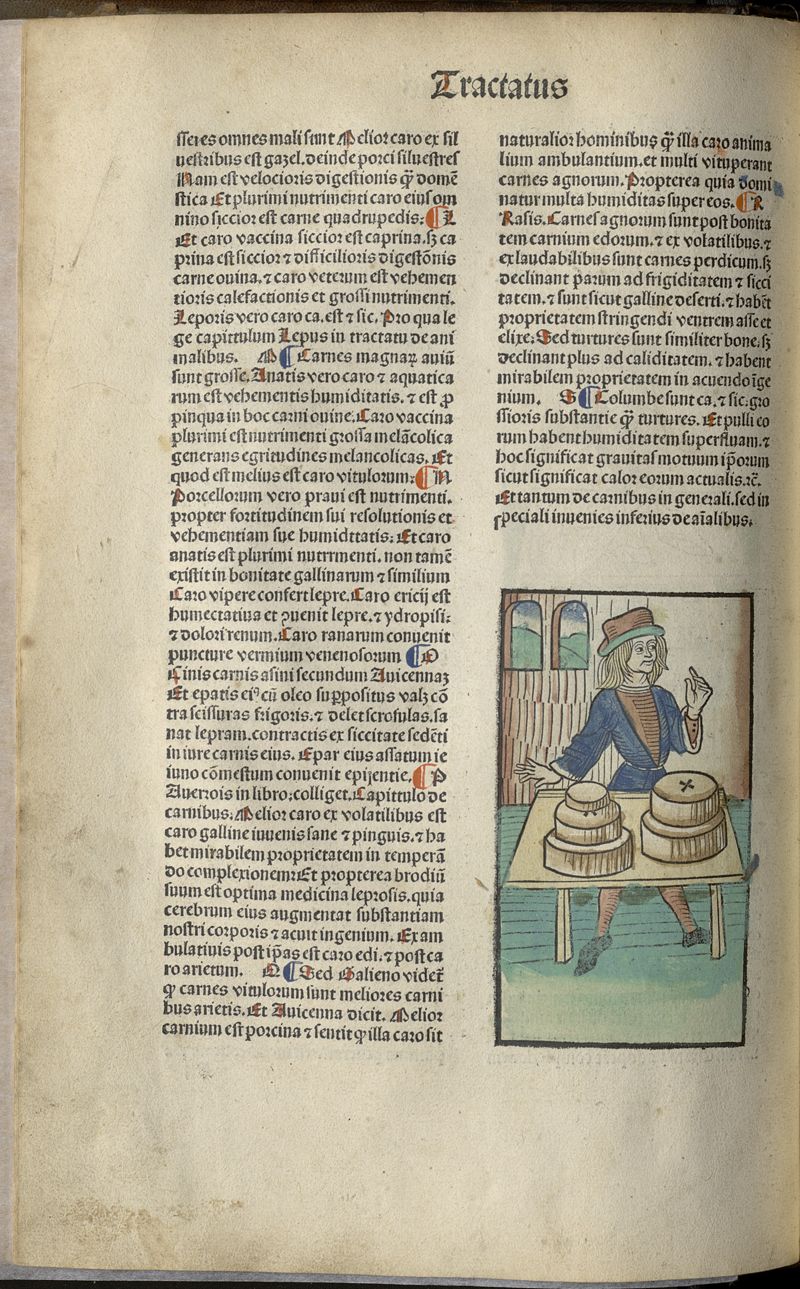 Tractatus
sseres omnes mali sunt Melior caro ex sil
uestribus est gazel. deinde porci siluestres
Nam est velocioris digestionis qȝ domē
stica Et plurimi nutrimenti caro eius om
nino siccior est carne quadrupedis: ¶ L
Et caro vaccina siccior est caprina. sȝ ca
prina est siccior ⁊ difficilioris digestōnis
carne ouina. ⁊ caro veterum est vehemen
tioris calefactionis et grossi nutrimenti.
Leporis vero caro ca. est ⁊ sic. Pro qua le
ge capittulum Lepus in tractatu de ani
malibus. M ¶ Carnes magnaꝝ auiū
sunt grosse. Anatis vero caro ⁊ aquatica
rum est vehementis humiditatis. ⁊ est ꝓ
pinqua in hoc carni ouine. Caro vaccina
plurimi est nutrimenti grossa melācolica
generans egritudines melancolicas. Et
quod est melius est caro vitulorum: ¶ N
Porcellorum vero praui est nutrimenti.
propter fortitudinem sui resolutionis et
vehementiam sue humidttatis: Et caro
anatis est plurimi nutrrmenti. non tamē
existit in bonitate gallinarum ⁊ similium
Caro vipere confert lepre. Caro ericij est
humectatiua et ꝯuenit lepre. ⁊ ydropisi:
⁊ dolori renum. Caro ranarum conuenit
puncture vermium venenosorum ¶ O
Cinis carnis asini secundum Auicennaȝ
Et epatis eiꝰ cū oleo suppositus valȝ cō
tra scissuras frigoris. ⁊ delet scrofulas. sa
nat lepram. contractis ex siccitate sedēti
in iure carnis eius. Epar eius assatum ie
iuno cōmestum conuenit epijentie. ¶ P
Auerrois in libro: colliget. Capittulo de
carnibus: Melior caro ex volatilibus est
caro galline iuuenis sane ⁊ pinguis. ⁊ ha
bet mirabilem proprietatem in temperā
do complexionem: Et propterea brodiū
suum est optima medicina leprosis. quia
cerebrum eius augmentat substantiam
nostri corporis ⁊ acuit ingenium. Ex am
bulatiuis post ip̄as est caro edi. ⁊ post ca
ro arietum. Q ¶ Sed Galieno videt᷑
qꝫ carnes vitulorum sunt meliores carni
bus arietis. Et Auicenna dicit. Melior
carnium est porcina ⁊ sentit qꝫ illa caro sit
naturalior hominibus qȝ illa caro anima
lium ambulantium. et multi vituperant
carnes agnorum. Propterea quia domi
natur multa humiditas super eos. ¶ R
Rasis. Carnes agnorum sunt post bonita
tem carnium edorum. ⁊ ex volatilibus. ⁊
ex laudabilibus sunt carnes perdicum. sȝ
declinant parum ad frigiditatem ⁊ sicci
tatem. ⁊ sunt sicut galline deserti. ⁊ habēt
proprietatem stringendi ventrem asse et
elixe: Sed turtures sunt similiter bone. sȝ
declinant plus ad caliditatem. ⁊ habent
mirabilem proprietatem in acuendo īge
nium. S ¶ Columbe sunt ca. ⁊ sic: gro
ssioris substantie qȝ turtures. Et pulli eo
rum habent humiditatem superfluam. ⁊
hoc significat grauitas motuum ip̄orum
sicut significat calor eorum actualis. ⁊c̄.
Et tantum de carnibus in generali. sed in
speciali inuenies inferius de aīalibus.